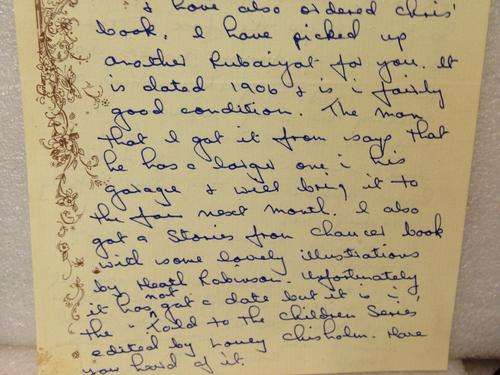 I have also ordered Chris'
book. I have picked up
another Rubaiyat for you. It
is dated 1906 & is i fairly
good condition. The man
that I got it from says that
he has a larger one i his
garage & will bring it to
the fair next month. I also
got a Stories from Chaucer book
with some lovely illustrations
by Heath Robinson. Unfortunately
it has not got a date but it is i
the "Told to The Children Series'
edited by Louey Chisholm. Have
you heard of it.